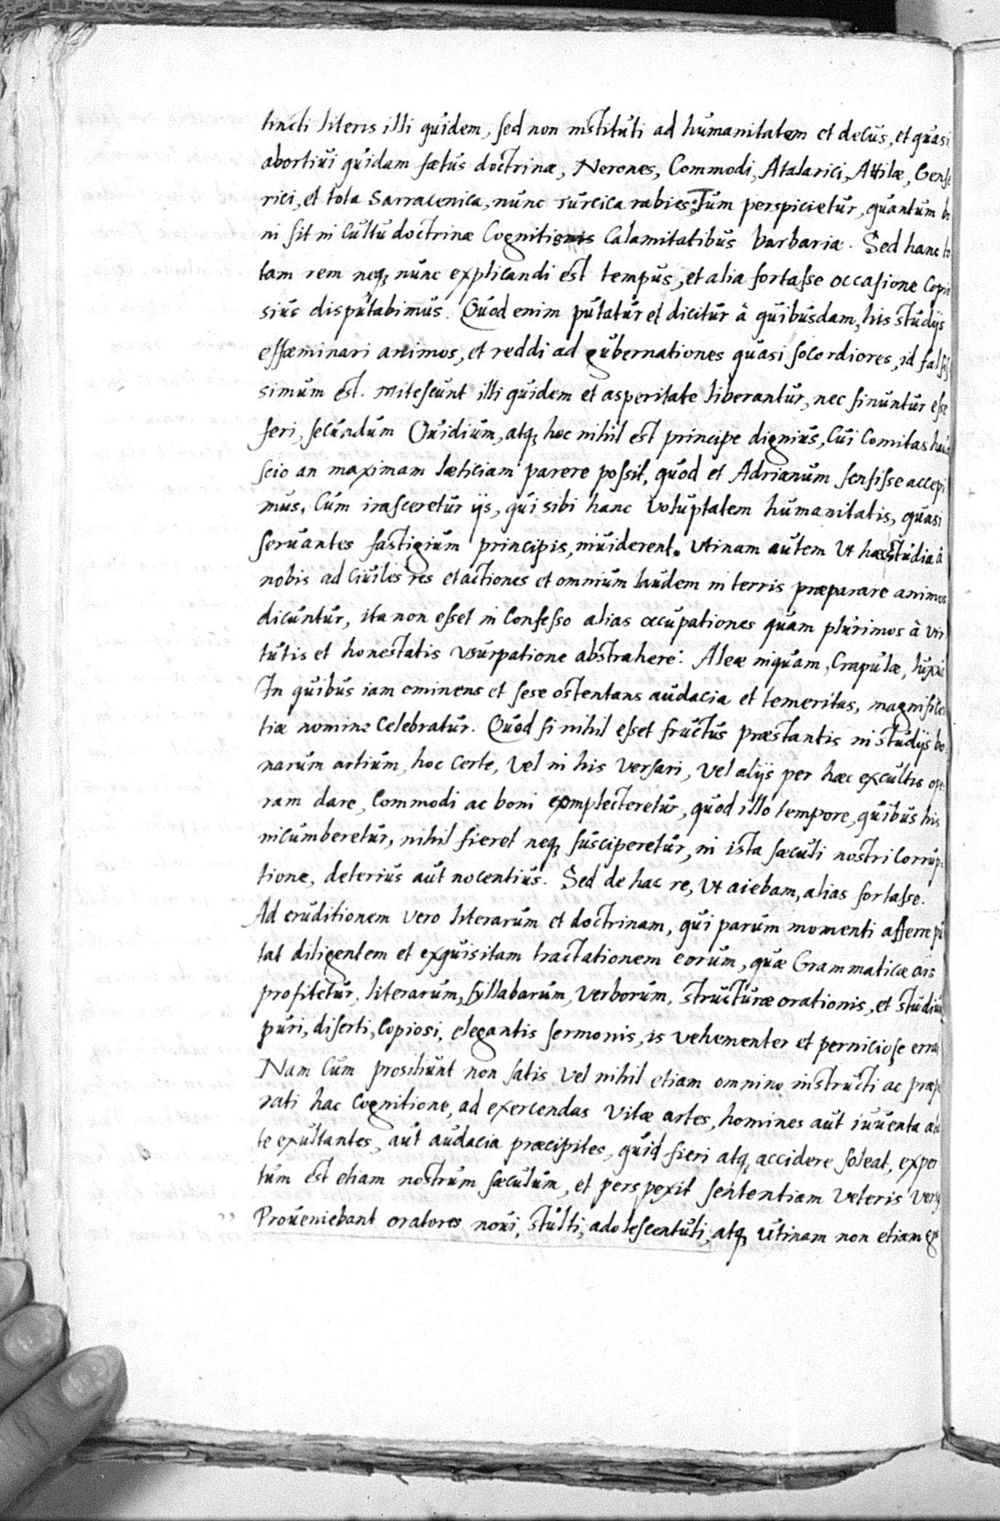 tincti literis illi quidem, sed non instituti ad humanitatem et decus, et quasi
abortivi quidam fætus doctrinæ, Nerones, Commodi, Atalarici, Attilæ, Gense
rici, et tota Sarracenica, nunc Turcica rabies. Tum perspicietur, quantum bo
ni sit in cultu doctrinæ cognitis calamitatibus barbariæ. Sed hanc to
tam rem neq, nunc explicandi est tempus, et alia fortasse occasione copio
sius disputabimus. Quod enim putatur et dicitur à quibusdam, his studijs
effæminari animos, et reddi ad gubernationes quasi socordiores, id falsis
simum est. Mitescunt illi quidem et asperitate liberantur, nec sinuntur esse
feri, secundum Ovidium, atq, hoc nihil est principe dignius, cui comitas haud
scio an maximam læticiam parere possit, quod et Adrianum sensisse accepi
mus, cum irasceretur ijs, qui sibi hanc voluptatem humanitatis, quasi
servantes fastigium principis, inviderent. Utinam autem ut hæc studia à
nobis ad civiles res et actiones et omnium laudem in terris præparare animos
dicuntur, ita non esset in confesso alias occupationes quam plurimos à vir
tutis et honestatis usurpatione abstrahere: Aleæ inquam, crapulæ, luxus
In quibus iam eminens et sese ostentans audacia et temeritas, magnificen
tiæ nomine celebratur. Quod si nihil esset fructus præstantis in studijs bo
narum artium, hoc certe, vel in his versari, vel alijs per hæc excultis ope
ram dare, commodi ac boni complecteretur, quod illo tempore, quibus his
incumberetur, nihil fieret neq, susciperetur, in ista sæculi nostri corrup
tione, deterius aut nocentius. Sed de hac re, ut aiebam, alias fortasse.
Ad eruditionem vero literarum et doctrinam, qui parum momenti afferre pu
tat diligentem et exquisitam tractationem eorum, quæ Grammaticæ ars
profitetur, literarum, syllabarum, verborum, structuræ orationis, et studium
puri, diserti, copiosi, elegantis sermonis, is vehementer et perniciose errat
Nam cum prosiliunt non satis vel nihil etiam omnino instructi ac præpa
rati hac cognitione, ad exercendas vitæ artes, homines aut iuventa
te exultantes, aut audacia præcipites, quid fieri atq, accidere soleat, exper
tum est etiam nostrum sæculum, et perspexit sententiam veteris versus
Proveniebant oratores novi, stulti, adolescentuli, atq, utinam non etiam